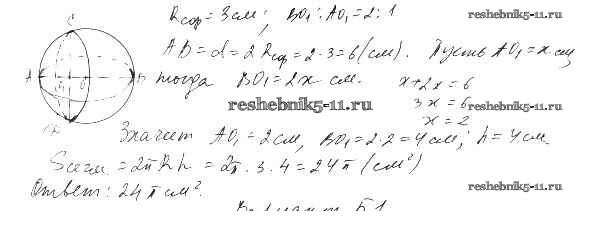 Rсф = 3 см; BO₁ : AO₁ = 2 : 1
reshebnik5-11.ru
AB = d = 2 Rсф = 2 · 3 = 6 (см). Пусть AO₁ = x см
тогда BO₁ = 2x см.
x + 2x = 6
reshebnik5-11.ru
3x = 6
reshebnik5-11.ru
x = 2
Значит AO₁ = 2 см, BO₁ = 2 · 2 = 4 см; h = 4 см
Sсегм = 2πRh = 2π · 3 · 4 = 24π (см²)
Ответ: 24π см².
reshebnik5-11.ru
C
A
O₁
O
B
D